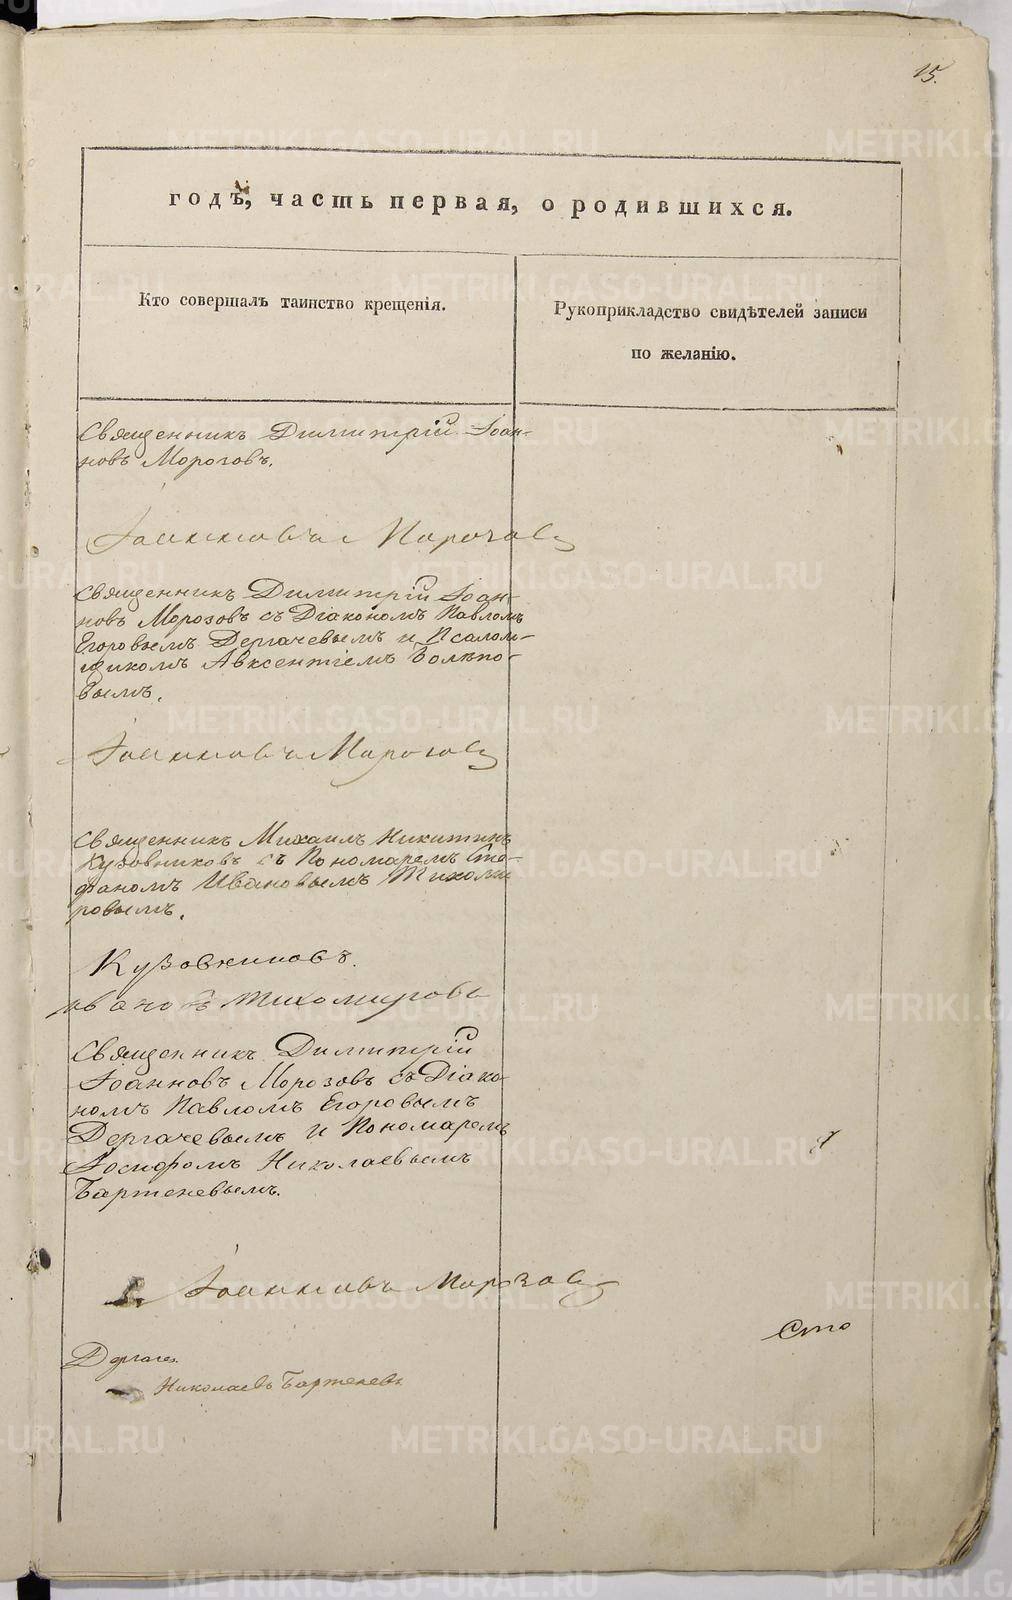 15.
годъ, часть первая, о родившихся.
Кто совершалъ таинство крещенія.
Рукоприкладство свидѣтелей записи
по желанію.
Священникъ Димитрій Іоан-
новъ Морозовъ.
Іоанновъ Морозовъ
Священникъ Димитрій Іоан-
новъ Морозовъ съ Діакономъ Павломъ
Егоровымъ Дергачевымъ и Псалом-
щикомъ Авксентіемъ
вымъ.
Іоанновъ Морозовъ
Священникъ Михаилъ Никитинъ
Кузовниковъ съ Пономаремъ Сте-
фаномъ Ивановымъ Тихоми
ровымъ.
Кузовниковъ.
Ивановъ Тихомировъ
Священникъ Димитрій
Іоанновъ Морозовъ съ Діако-
номъ Павломъ Егоровымъ
Дергачевымъ и Пономаремъ
Іосифомъ Николаевымъ
Бартеневымъ.
Іоанновъ Морозовъ
Сто
Дергачев
Николаевъ Бартеневъ
METRIKI.GASO-URAL.RU